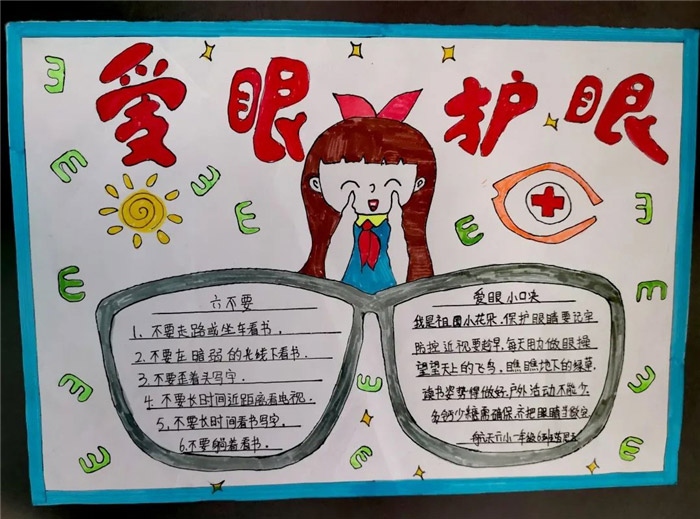 爱眼护眼
六不要
1、不要走路或坐车看书。
2、不要在暗弱的光线下看书。
3、不要歪着头写字。
4、不要长时间近距离看电视。
5、不要长时间看书写字。
6、不要躺着看书。
爱眼小口决
我是祖国小花朵,保护眼睛要记牢
防控近视要趁早,每天用功做眼操
望望天上的飞鸟,瞧瞧地下的绿草
读书姿势得做好,户外活动不能少
多钙少糖需确保,亦把眼睛
航天六小一年级